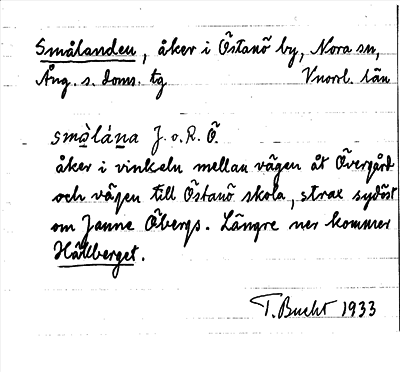 Smålanden, åker i Östanö by, Nora sn,
Ång. s. doms. tg Vnorrl. län
smålána J. o. R. Ö.
åker i vinkeln mellan vägen åt Övergård
och vägen till Östanö skola, strax sydöst
om Janne Öbergs. Längre ner kommer
Hällberget.
T. Bucht 1933